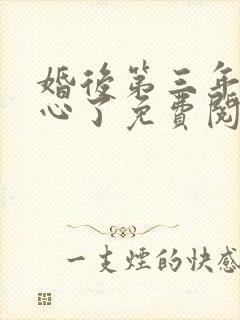 婚後第三年
心了免費閱
一支煙的快感